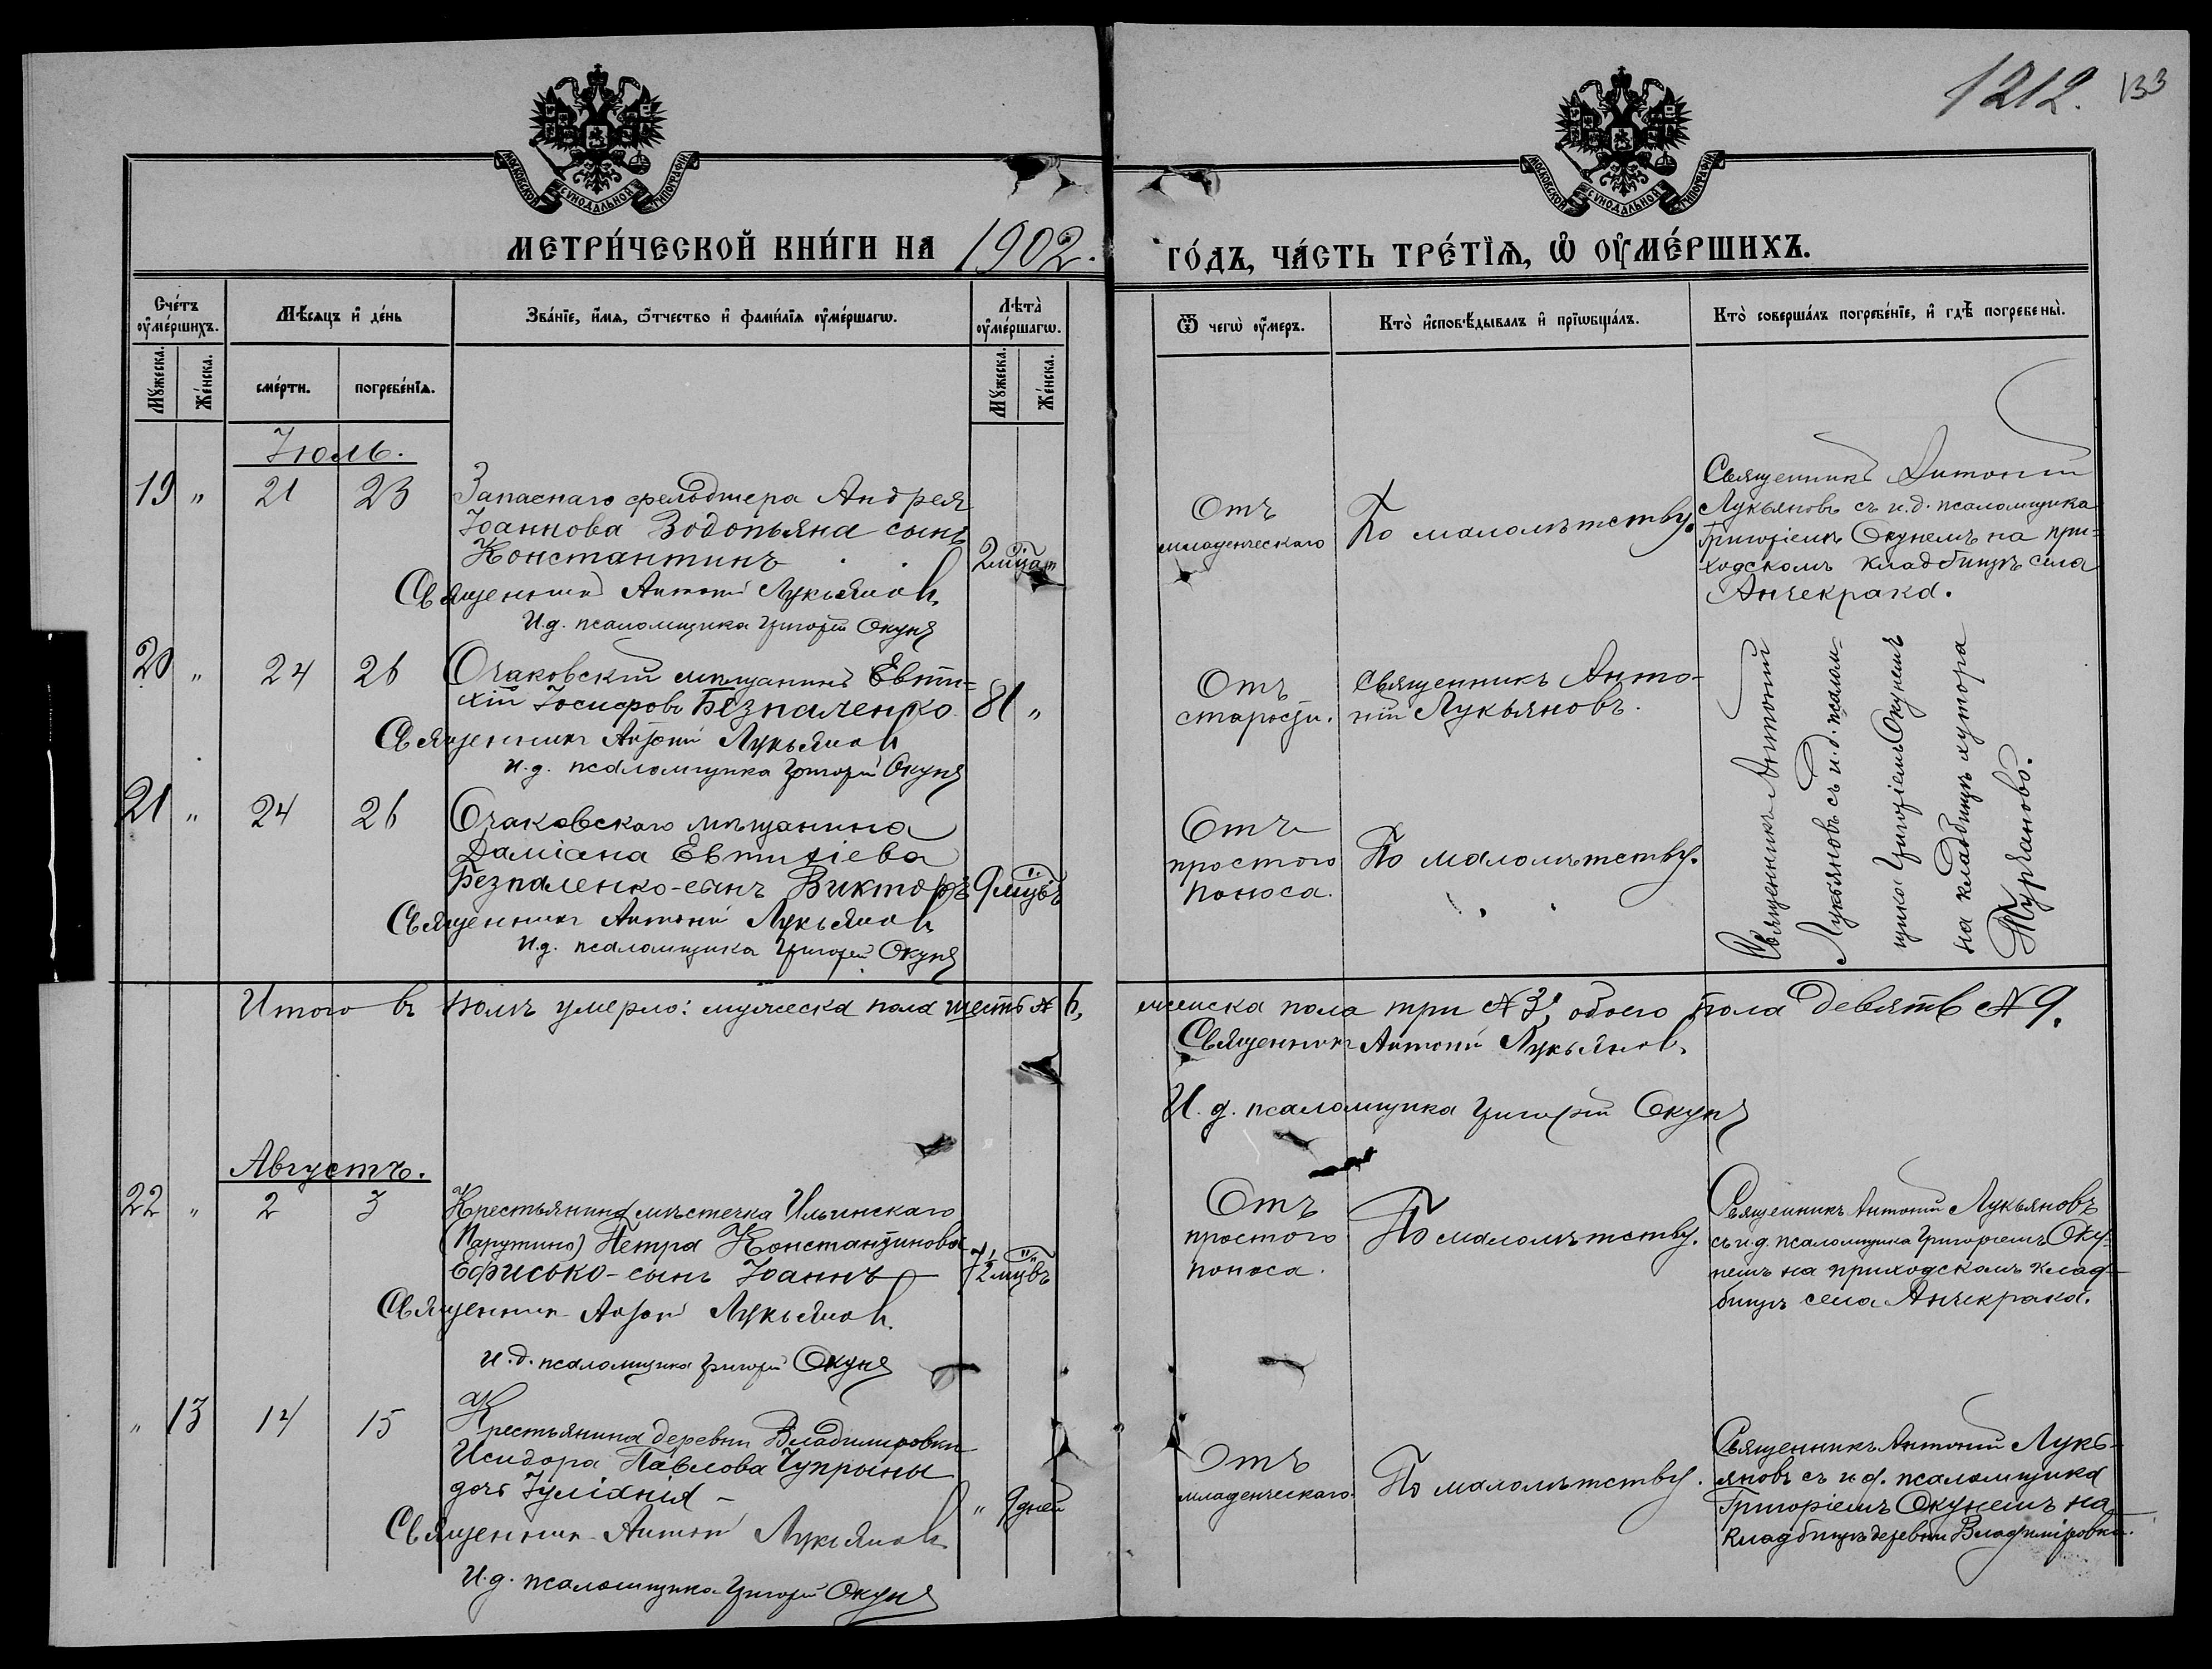 1212. 133
МОСКОВСКОЙ СѴНОДАЛЬНОЙ ТИПОГРАФІИ
МОСКОВСКОЙ СѴНОДАЛЬНОЙ ТИПОГРАФІИ
МЕТРИ́ЧЕСКОЙ КНИ́ГИ НА 1902. ГО́ДЪ, ЧА́СТЬ ТРЕ́ТЇѦ, Ѡ ОУ҆МЕ́РШИХЪ.
Сче́тъ
оу҆ме́ршихъ.
Мꙋ́жеска.
Же́нска.
Мѣ́сяцъ и҆ де́нь
сме́рти.
погребе́нїѧ.
Зва́нїе, и҆́мѧ, ѻ҆́тчество и҆ фами́лїѧ оу҆ме́ршагѡ.
Лѣ́та
оу҆ме́ршагѡ.
Мꙋ́жеска.
Же́нска.
Ѿ чегѡ̀ оу҆́меръ.
Кто̀ и҆сповѣ́дывалъ и҆ прїѡбща́лъ.
Кто̀ соверша́лъ погребе́нїе, и҆ гдѣ̀ погребены̀.
Іюль.
19 " 21 23
Запаснаго фельдшера Андрея
Іоаннова Водопьяна сынъ
Константинъ
2 мцда
Священникъ Антоній Лукьяновъ
И.д. псаломщика Григорій Окунь
Отъ
младенческаго
По малолѣтству.
Священникъ Антоній
Лукьяновъ съ и.д. псаломщика
Григоріемъ Окунемъ на при-
ходскомъ кладбищѣ села
Анчекрака.
20 " 24 26
Очаковскій мѣщанинъ Евти-
хій Іосифовъ Безпаленко
81 "
Священникъ Антоній Лукьяновъ
И.д. псаломщика Григорій Окунь
Отъ
старости.
Священникъ Анто-
ній Лукьяновъ.
21 " 24 26
Очаковскаго мѣщанина
Даміана Евтихіева
Безпаленко-сынъ Викторъ
9 мцвъ
Священникъ Антоній Лукьяновъ
И.д. псаломщика Григорій Окунь
Отъ
простого
поноса.
По малолѣтству.
Священникъ Антоній
Лукьяновъ съ и.д. псалом-
щика Григоріемъ Окунемъ
на кладбищѣ хутора
Итого въ Іюлѣ умерло: мужеска пола шесть № 6, женска пола три № 3, обоего пола девять № 9.
Священникъ Антоній Лукьяновъ.
И.д. псаломщика Григорій Окунь
Августъ.
22 " 2 3
Крестьянина мѣстечка Ильинскаго
(Парутино) Петра Константинова
Ефисько-сынъ Іоаннъ
7 1/2 мцвъ
Священникъ Антоній Лукьяновъ
И.д. псаломщика Григорій Окунь
Отъ
простого
поноса.
По малолѣтству.
Священникъ Антоній Лукьяновъ
съ и.д. псаломщика Григоріемъ Оку-
немъ на приходскомъ клад-
бищѣ села Анчекрака.
" 13 14 15
Крестьянина деревни Владимировки
Исидора Павлова Чупрыны
дочь Іуліанія -
" 9 дней
Священникъ Антоній Лукьяновъ
И.д. псаломщика Григорій Окунь
Отъ
младенческаго.
По малолѣтству.
Священникъ Антоній Лукь-
яновъ съ и.д. псаломщика
Григоріемъ Окунемъ на
кладбищѣ деревни Владиміровки.